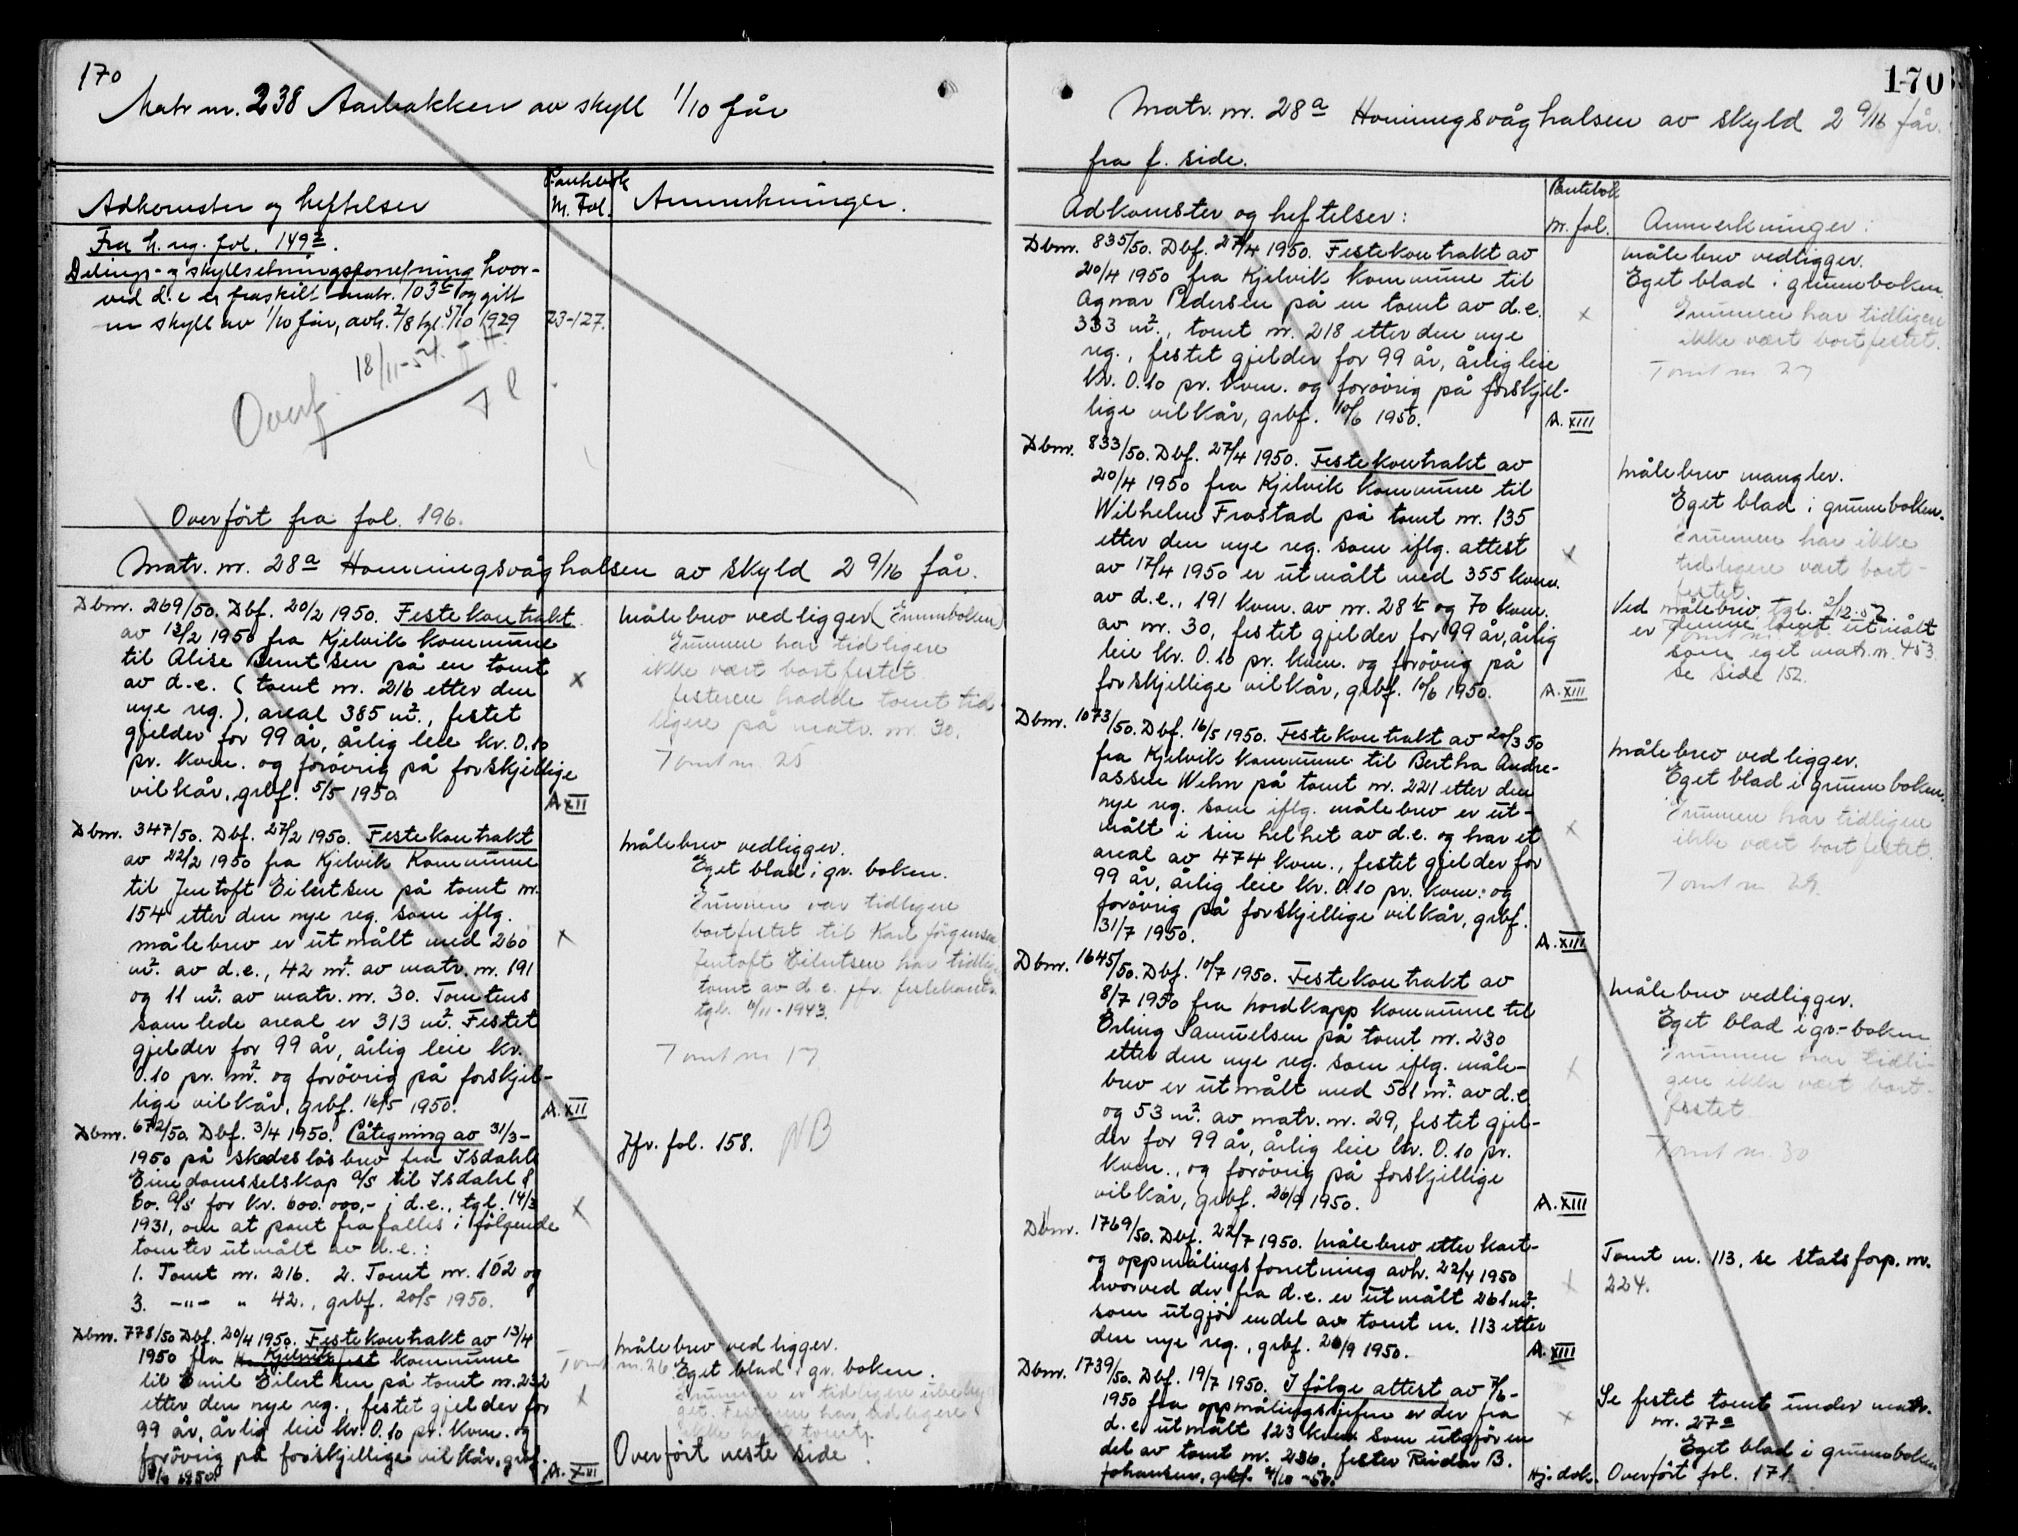 170
Matr nr. 238 Aarbakken av skyll 1/10 får
Adkomster og heftelser
Pantebok
Nr. Fol.
Anmerkninger.
Fra h. reg. fol. 149
Delings- og skyllsetningsforretning hvor-
ved d.e er fraskilt matr. 103 og gitt
en skyll av 1/10 får, avh. 2/8 tgl. 5/10 1929
23-127.
Overf. 18/11-54.
Overført fra fol. 196.
Matr. nr. 28a Honningsvåghalsen av skyld 2 9/16 får.
Dbnr. 269/50. Dbf. 20/2 1950. Festekontrakt
av 13/2 1950 fra Kjelvik kommune
til Alise Berntsen på en tomt
av d.e. (tomt nr. 216 etter den
nye reg.), areal 385 m²., festet
gjelder for 99 år, årlig leie kr. 0.10
pr. kvm. og forøvrig på forskjellige
vilkår, grbf. 5/5 1950.
A. XII
Målebrev vedligger (Grunnboken)
Grunnen har tidligere
ikke vært bortfestet.
festeren hadde tomt tid
ligere på matr. nr. 30.
Tomt nr. 25
Dbnr. 347/50. Dbf. 27/2 1950. Festekontrakt
av 22/2 1950 fra Kjelvik Kommune
til Jentoft Eilertsen på tomt nr.
154 etter den nye reg. som iflg.
målebrev er utmålt med 260
m². av d.e., 42 m². av matr. nr. 191
og 11 m². av matr. nr. 30. Tomtens
samlede areal er 313 m². Festet
gjelder for 99 år, årlig leie kr.
0.10 pr. m². og forøvrig på forskjel-
lige vilkår, grbf. 16/5 1950.
A. XII
Målebrev vedligger.
Eget blad i gr. boken.
Grunnen var tidligere
bortfestet til Karl Jørgensen.
Jentoft Eilertsen har tidlig
tomt av d.e. jfr. festekontr.
tgl. 10/11-1943.
Tomt nr 17
Dbnr. 672/50. Dbf. 3/4 1950. Påtegning av 31/3-
1950 på skadesløsbrev fra Isdahls
Eiendomsselskap a/s til Isdahl &
Co. a/s for kr. 600.000,- i d.e., tgl. 14/3
1931, om at pant frafalles i følgende
tomter utmålt av d.e.:
1. Tomt nr. 216. 2. Tomt nr. 152 og
3. -"- " 42., grbf. 20/5 1950.
Jfr. fol. 158. NB
Dbnr. 778/50 Dbf. 20/4 1950. Festekontrakt av 13/4
1950 fra Kjelvik kommune
til Emil Eilertsen på tomt nr. 232
etter den nye reg., festet gjelder for
99 år, årlig leie kr. 0.10 pr. kvm. og
forøvrig på forskjellige vilkår, grbf.
1950.
A. XIII
Målebrev vedligger.
Tomt nr. 26 Eget blad i gr. boken.
Grunnen er tidligere ubebyg
get. Festeren har tidligere
ikke hatt tomt.
Overført neste side.
170
Matr. nr. 28a Honningsvåghalsen av skyld 2 9/16 får.
fra f. side.
Adkomster og heftelser:
Pantebok
nr. fol.
Anmerkninger:
Dbnr. 835/50. Dbf. 27/4 1950. Festekontrakt av
20/4 1950 fra Kjelvik Kommune til
Agnar Pedersen på en tomt av d.e.
333 m²., tomt nr. 218 etter den nye
reg., festet gjelder for 99 år, årlig leie
kr. 0.10 pr. kvm. og forøvrig på forskjel-
lige vilkår, grbf. 10/6 1950.
A. XIII
Målebrev vedligger.
Eget blad i grunnboken.
Grunnen har tidligere
ikke vært bortfestet.
Tomt nr. 27
Dbnr. 833/50. Dbf. 27/4 1950. Festekontrakt av
20/4 1950 fra Kjelvik kommune til
Wilhelm Frostad på tomt nr. 135
etter den nye reg. som iflg. attest
av 17/4 1950 er utmålt med 355 kvm.
av d.e., 191 kvm. av nr. 28b og 70 kvm.
av nr. 30, festet gjelder for 99 år, årlig
leie kr. 0.10 pr. kvm. og forøvrig på
forskjellige vilkår, grbf. 10/6 1950.
A. XIII
Målebrev mangler.
Eget blad i grunnboken.
Grunnen har ikke
tidligere vært bort-
festet.
Ved målebrev tgl. 2/12-52
er denne tomt utmålt
som eget matr. nr. 453.
se side 152.
Dbnr. 1073/50. Dbf. 16/5 1950. Festekontrakt av 20/3 50
fra Kjelvik kommune til Bertha Andre-
assen Wehn på tomt nr. 221 etter den
nye reg. som iflg. målebrev er ut-
målt i sin helhet av d.e. og har et
areal av 474 kvm., festet gjelder for
99 år, årlig leie kr. 0.10 pr. kvm. og
forøvrig på forskjellige vilkår, grbf.
31/7 1950.
A. XIII
Målebrev vedligger.
Eget blad i grunnboken.
Grunnen har tidligere
ikke vært bortfestet.
Tomt nr 29.
Dbnr. 1645/50. Dbf. 10/7 1950. Festekontrakt av
8/7 1950 fra Nordkapp kommune til
Erling Samuelsen på tomt nr. 230
etter den nye reg. som iflg. måle-
brev er utmålt med 501 m². av d.e.
og 53 m². av matr. nr. 29, festet gjel-
der for 99 år, årlig leie kr. 0.10 pr.
kvm., og forøvrig på forskjellige
vilkår, grbf. 26/9 1950.
A. XIII
Målebrev vedligger.
Eget blad i gr.-boken
Grunnen har tidli-
gere ikke vært bort-
festet
Tomt nr. 30
Dbnr. 1769/50. Dbf. 22/7 1950. Målebrev etter kart-
og oppmålingsforretning avh. 22/4 1950
hvorved der fra d.e. er utmålt 261 m².
som utgjør endel av tomt nr. 113 etter
den nye reg., grbf. 20/9 1950.
A. XIII
Tomt nr. 113, se statsforp. nr.
224.
Dbnr. 1739/50. Dbf. 19/7 1950. I følge attest av 7/6-
1950 fra oppmålingssjefen er der fra
d.e. utmålt 123 kvm som utgjør en
del av tomt nr. 236, fester Reidar B.
Johansen, grbf. 4/10-50.
Hj. dok.
Se festet tomt under matr.
nr. 27a
Eget blad i grunnboken
Overført fol. 171.